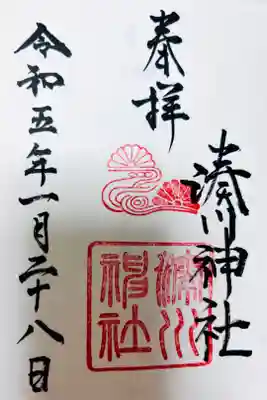 奉拝
湊川神社
湊川
神社
令和五年一月二十八日